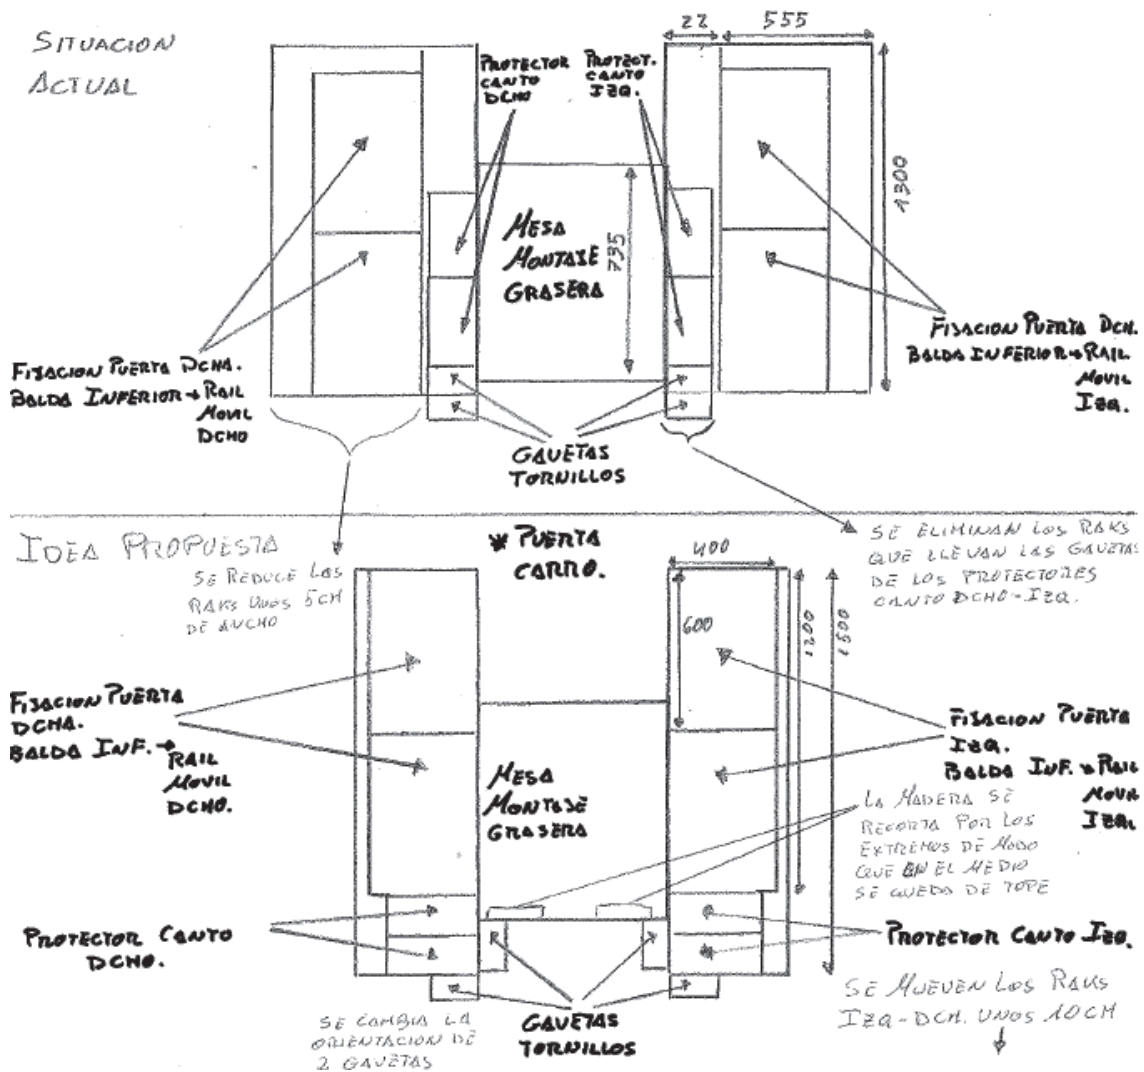 SITUACION
ACTUAL
PROTECTOR
CANTO
DCHO
PROTECT.
CANTO
IZQ.
22
555
1300
MESA
MONTAJE
GRASERA
735
FIJACION PUERTA DCHA.
BALDA INFERIOR → RAIL
MOVIL
DCHO
FIJACION PUERTA DCH.
BALDA INFERIOR → RAIL
MOVIL
IZQ.
GAVETAS
TORNILLOS
IDEA PROPUESTA
SE REDUCE LOS
RAKS UNOS 5CM
DE ANCHO
* PUERTA
CARRO.
SE ELIMINAN LOS RAKS
QUE LLEVAN LAS GAVETAS
DE LOS PROTECTORES
CANTO DCHO-IZQ.
400
600
1200
1500
FIJACION PUERTA
DCHA.
BALDA INF. → RAIL
MOVIL
DCHO.
MESA
MONTAJE
GRASERA
FIJACION PUERTA
IZQ.
BALDA INF. → RAIL
MOVIL
IZQ.
LA MADERA SE
RECORTA POR LOS
EXTREMOS DE MODO
QUE EN EL MEDIO
SE QUEDA DE TOPE
PROTECTOR CANTO
DCHO.
PROTECTOR CANTO IZQ.
SE MUEVEN LOS RAKS
IZQ-DCH. UNOS 10CM
SE CAMBIA LA
ORIENTACION DE
2 GAVETAS
GAVETAS
TORNILLOS